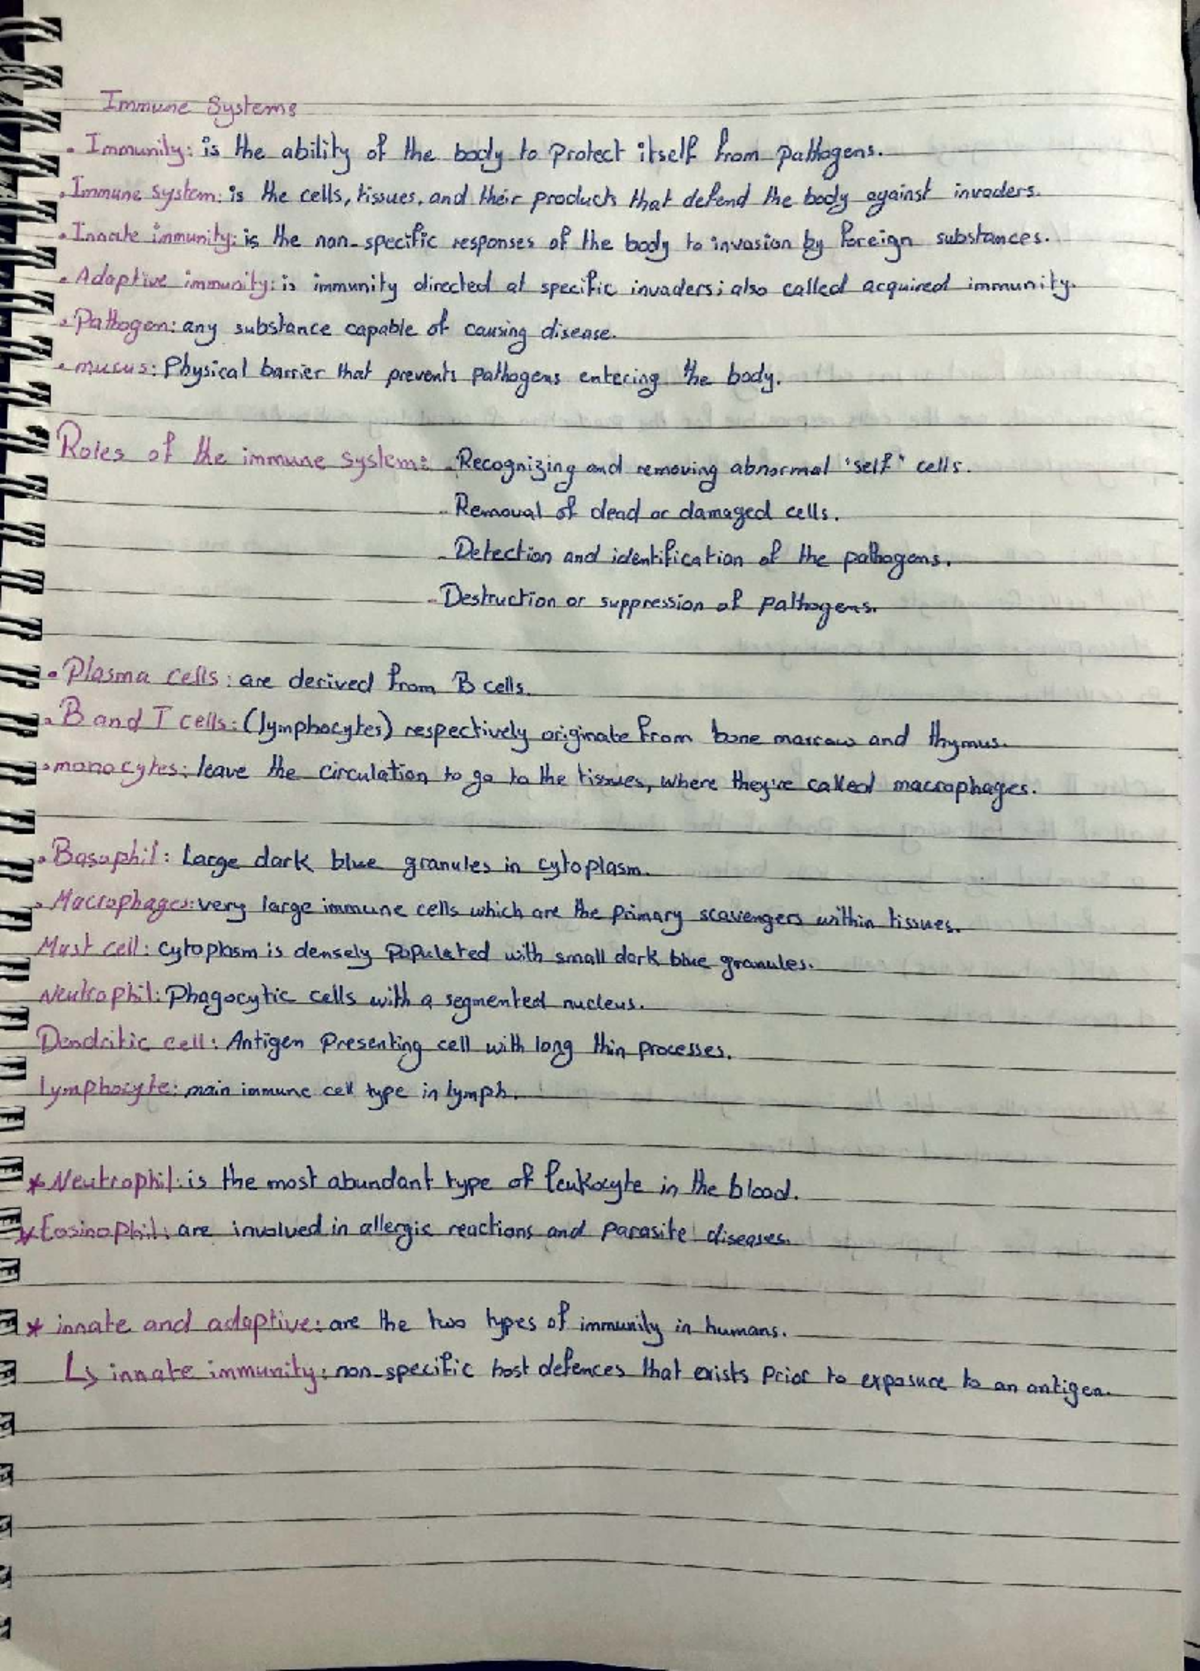 Immune Systems
• Immunity: is the ability of the body to protect itself from pathogens.
• Immune system: is the cells, tissues, and their products that defend the body against invaders.
• Innate immunity: is the non-specific responses of the body to invasion by foreign substances.
• Adaptive immunity: is immunity directed at specific invaders; also called acquired immunity.
• Pathogen: any substance capable of causing disease.
• mucus: Physical barrier that prevents pathogens entering the body.
Roles of the immune system: - Recognizing and removing abnormal "self" cells.
- Removal of dead or damaged cells.
- Detection and identification of the pathogens.
- Destruction or suppression of pathogens.
• Plasma cells: are derived from B cells.
• B and T cells: (lymphocytes) respectively originate from bone marrow and thymus.
• monocytes: leave the circulation to go to the tissues, where they're called macrophages.
• Basophil: Large dark blue granules in cytoplasm.
• Macrophages: very large immune cells which are the primary scavengers within tissues.
Mast cell: cytoplasm is densely populated with small dark blue granules.
Neutrophil: Phagocytic cells with a segmented nucleus.
Dendritic cell: Antigen Presenting cell with long thin processes.
lymphocyte: main immune cell type in lymph.
* Neutrophil: is the most abundant type of leukocyte in the blood.
* Eosinophil: are involved in allergic reactions and parasite diseases.
* innate and adaptive: are the two types of immunity in humans.
↳ innate immunity: non-specific host defences that exists prior to exposure to an antigen.